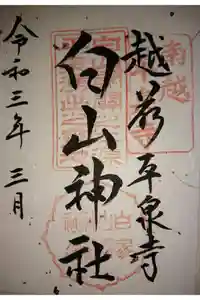 越前 平泉寺
白山神社
令和三年 三月
南越